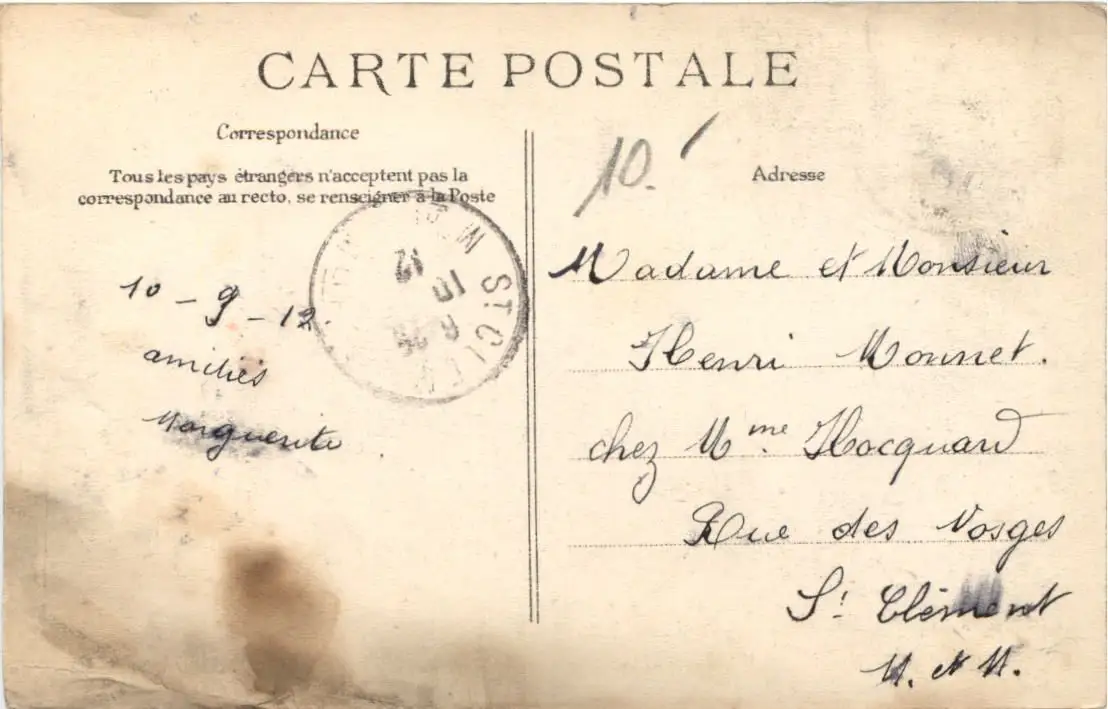 CARTE POSTALE
Correspondance
Tous les pays étrangers n'acceptent pas la
correspondance au recto, se renseigner à la Poste
10 - 9 - 12
amitiés
Marguerite
10.
Adresse
Madame et Monsieur
Henri Monnet.
chez Mme. Hocquard
Rue des Vosges
St Clément
M. et M.
ST CLEM
12
10
9